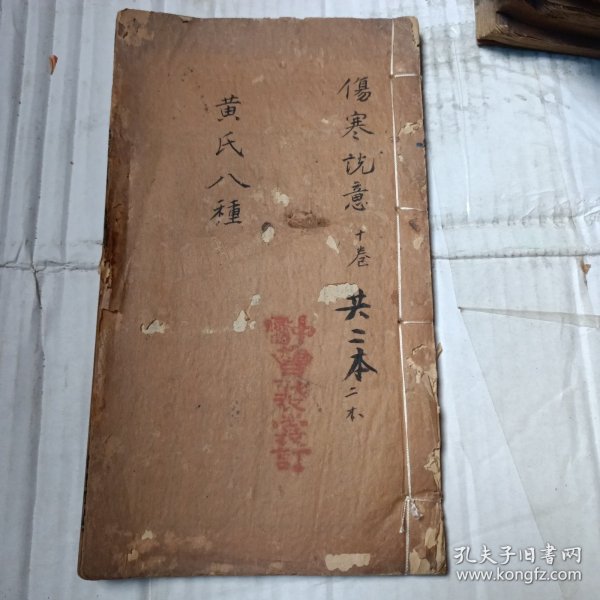 傷寒説意 十卷 共二本 二本
黃氏八種
孔夫子旧书网
www.kongfz.com